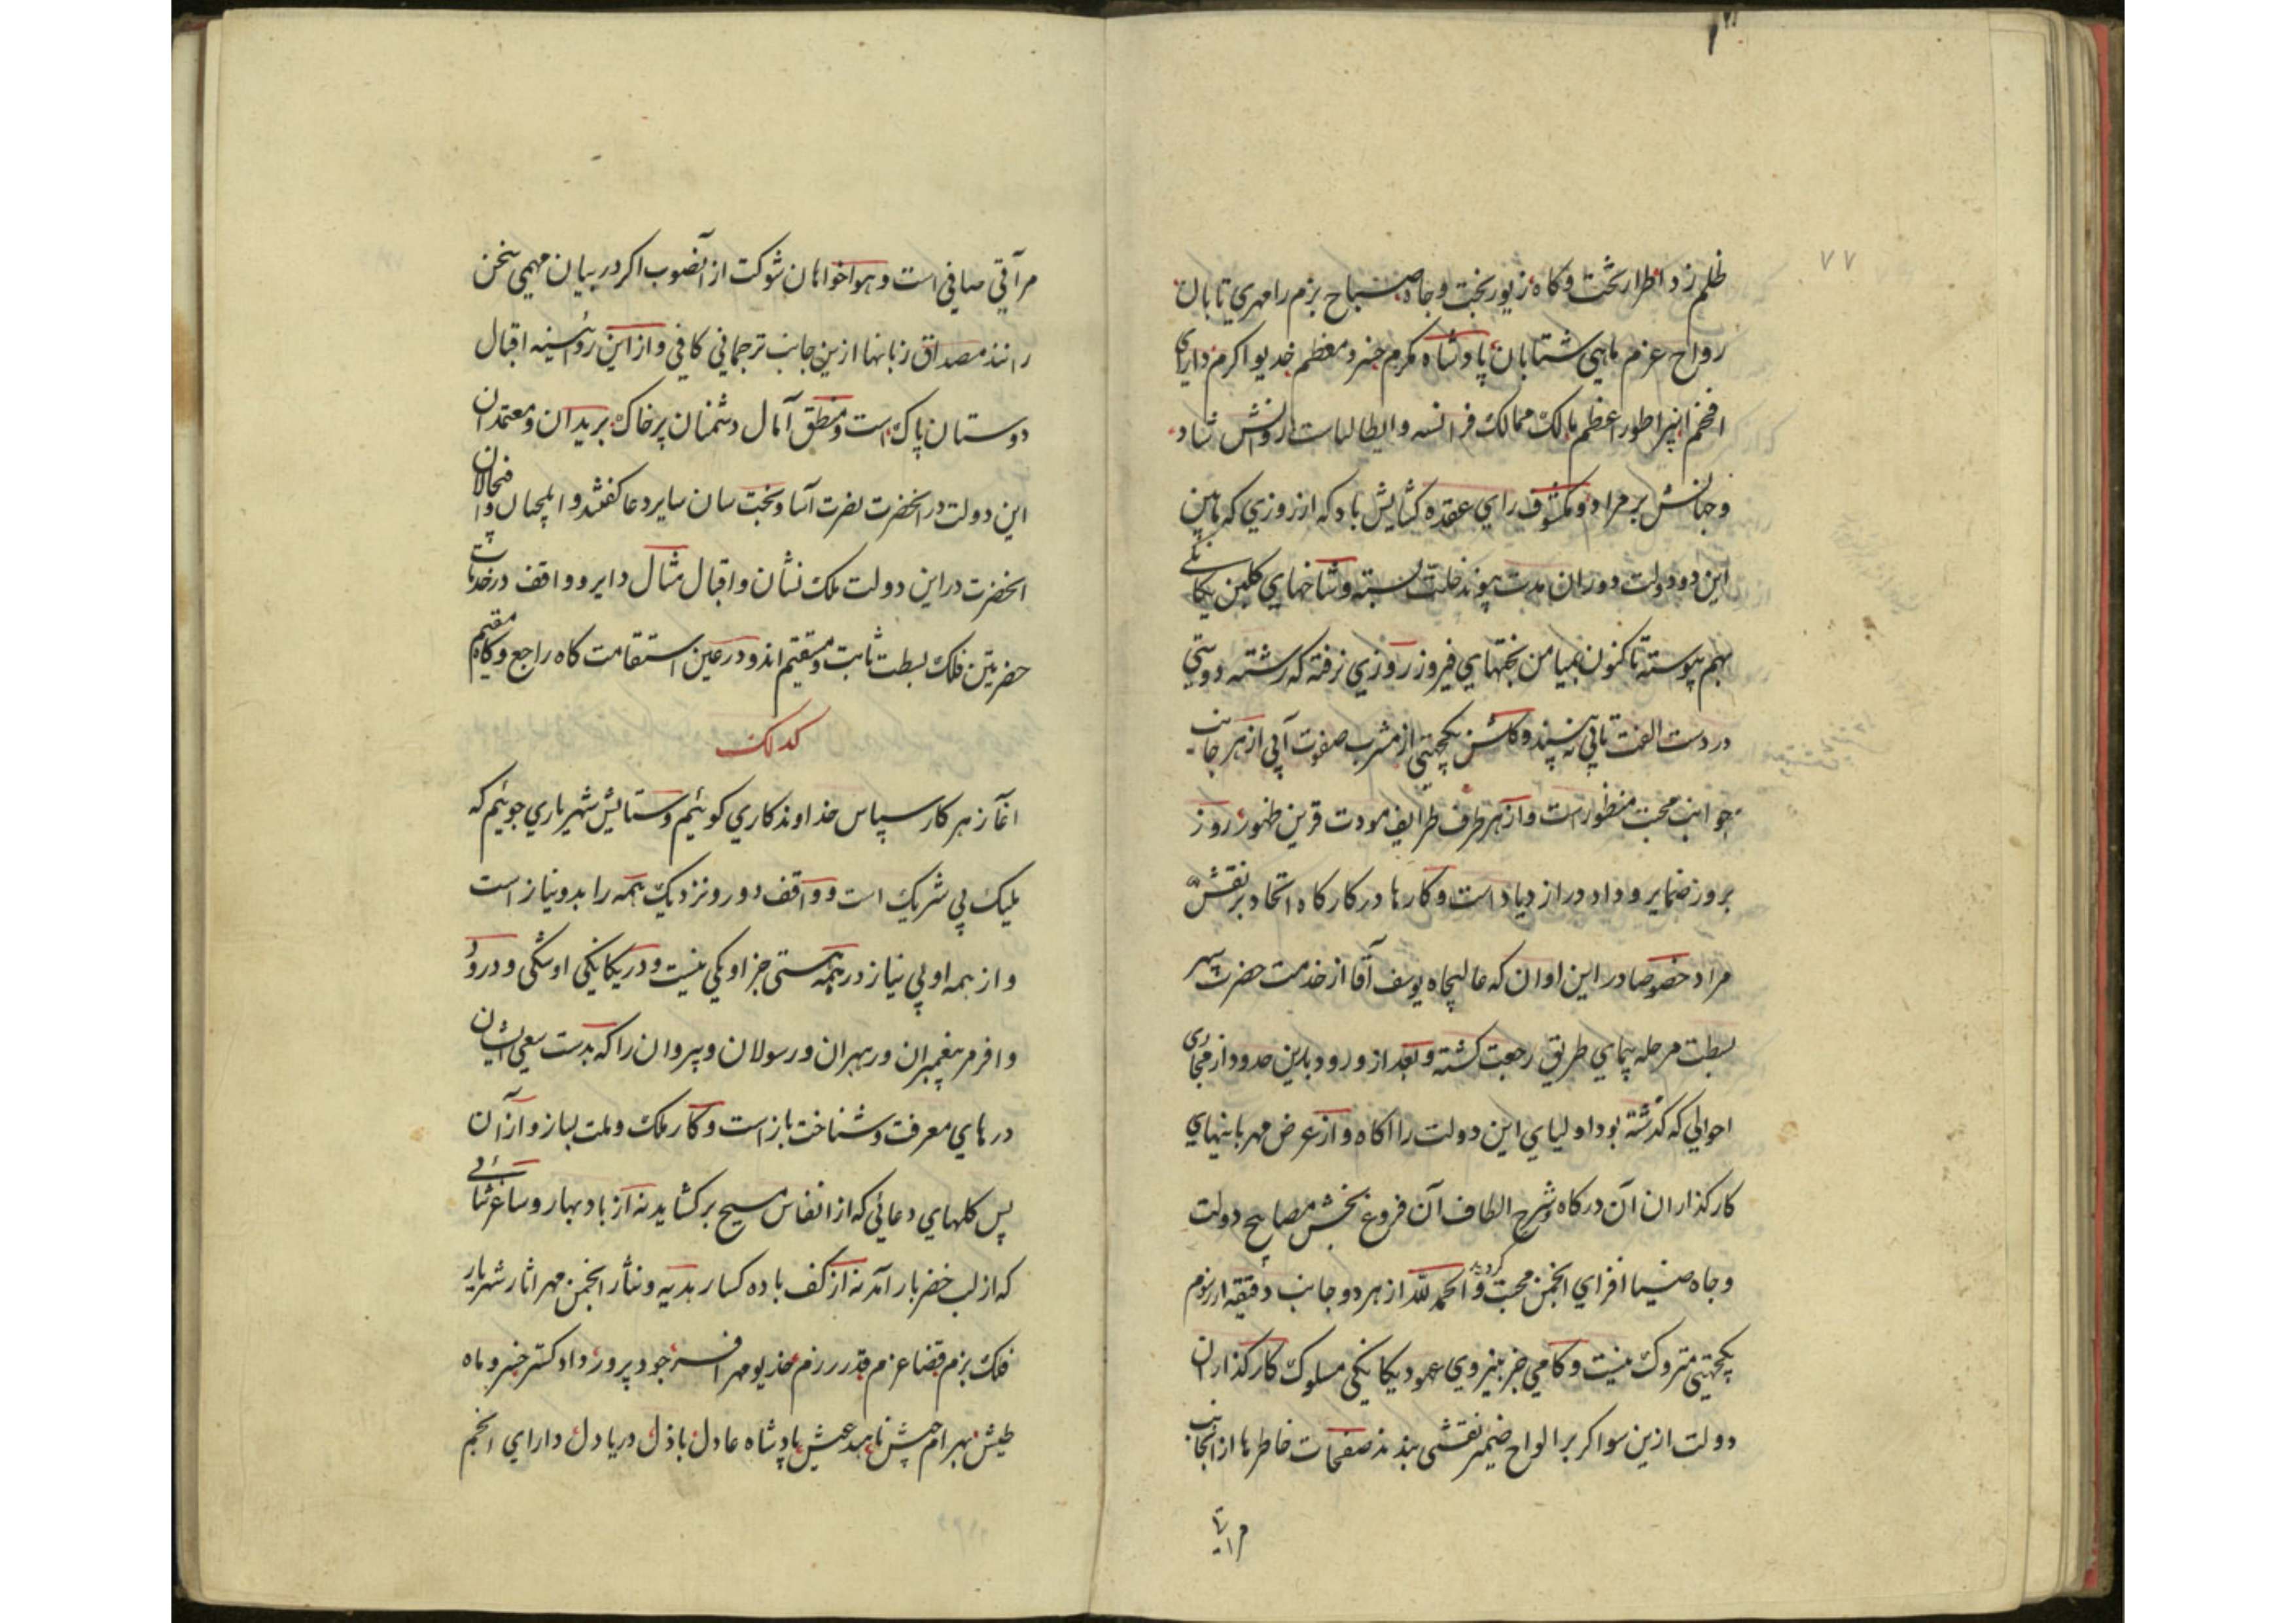 ۷۷
ظلم زد اطراز تخت و کاه زیور بخت و جاه صباح بزم را مهری تابان
رواح عزم ماهی شتابان پادشاه مکرم خسرو معظم خدیو اکرم دارای
افخم انپراطور اعظم مالک ممالک فرانسه و ایطالیا ست روانش شاد
و جانش بر مراد و مکشوف رای عقده کشایش باد که از روزی که مابین
این دو دولت دوران مدت پیوند خلت بسته و شاخهای کلبن یکانکی
بهم پیوسته تا کنون بمیامن بختهای فیروز روزی نرفته که رشته دوستی
در دست الفت تابی نه پسندد و کلشن یکجهتی از مشرب صفوت آبی از هر جانب
جوانب محبت منظور است و از هر طرف طرایف مودت قرین ظهور روز
بروز ضمایر و داد در ازدیاد است و کارها در کارکاه اتحاد بر نقش
مراد خصوصا در این اوان که عالیجاه یوسف آقا از خدمت حضرت سپهر
بسطت مرحله پیمای طریق رجعت کشته و بعد از ورود بدین حدود از مجاری
احوالی که کذشته بود اولیای این دولت را اکاه و از عرض مهربانیهای
کارکذاران آن درکاه و شرح الطاف آن فروغ بخش مصابیح دولت
و جاه ضیا افزای انجمن محبت کردید و الحمد لله از هر دو جانب دقیقه از رسوم
یکجهتی متروک نیست و کامی جز بنیروی عمود یکانکی مسلوک کارکذاران
دولت ازین سو اکر بر الواح ضمیر نقشی بندند صفحات خاطرها از انجانب
مراتی
مرآتی صافی است و هواخواهان شوکت از آنصوب اکر در بیان مهمی سخن
رانند مصداق زبانها ازین جانب ترجمانی کافی و از این رو آئینه اقبال
دوستان پاک است و منطق آمال دشمنان پر خاک بریدان و معتمدان
این دولت در انحضرت نصرت آسا و بخت سان سایر دعا کفتند و ایلچیان و
انحضرت در این دولت ملک نشان و اقبال مثال دایر و واقف در خدمات
حضرتین فلک بسطت ثابت و مستقیم اند و در عین استقامت کاه راجع و کاه مقیم
کدلک
اغآز هر کار سپاس خداوند کاری کوئیم و ستایش شهریاری جوئیم که
ملیک بی شریک است و واقف دور و نزدیک همه را بدو نیاز است
و از همه او بی نیاز در همه هستی جز او یکی نیست و در یکانیکی او شکی و درود
وافر مر پیغمبران و رهبران و رسولان و پیروان را که بدست سعی ایشان
درهای معرفت و شناخت باز است و کار ملک و ملت بساز و از آن
پس کلهای دعائی که از انفاس مسیح بر کشاید نه از باد بهار و ساغر ثنائی
که از لب خضر بار آمد نه از کف باده کسار هدیه و نثار انجمن مهر اثار شهریار
فلک بزم قضا عزم قدر رزم خدیو مهر افسر جود پرور داد کستر خسرو ماه
طیش بهرام جیش ناهید عیش پادشاه عادل باذل دریا دل دارای انجم